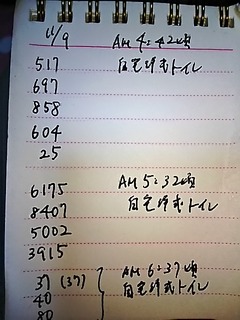 11/9 AM 4:42頃
517 自宅洋式トイレ
697
858
604
25
6175 AM 5:32頃
8407 自宅洋式トイレ
5002
3915
37 (37) AM 6:37頃
40 自宅洋式トイレ
80